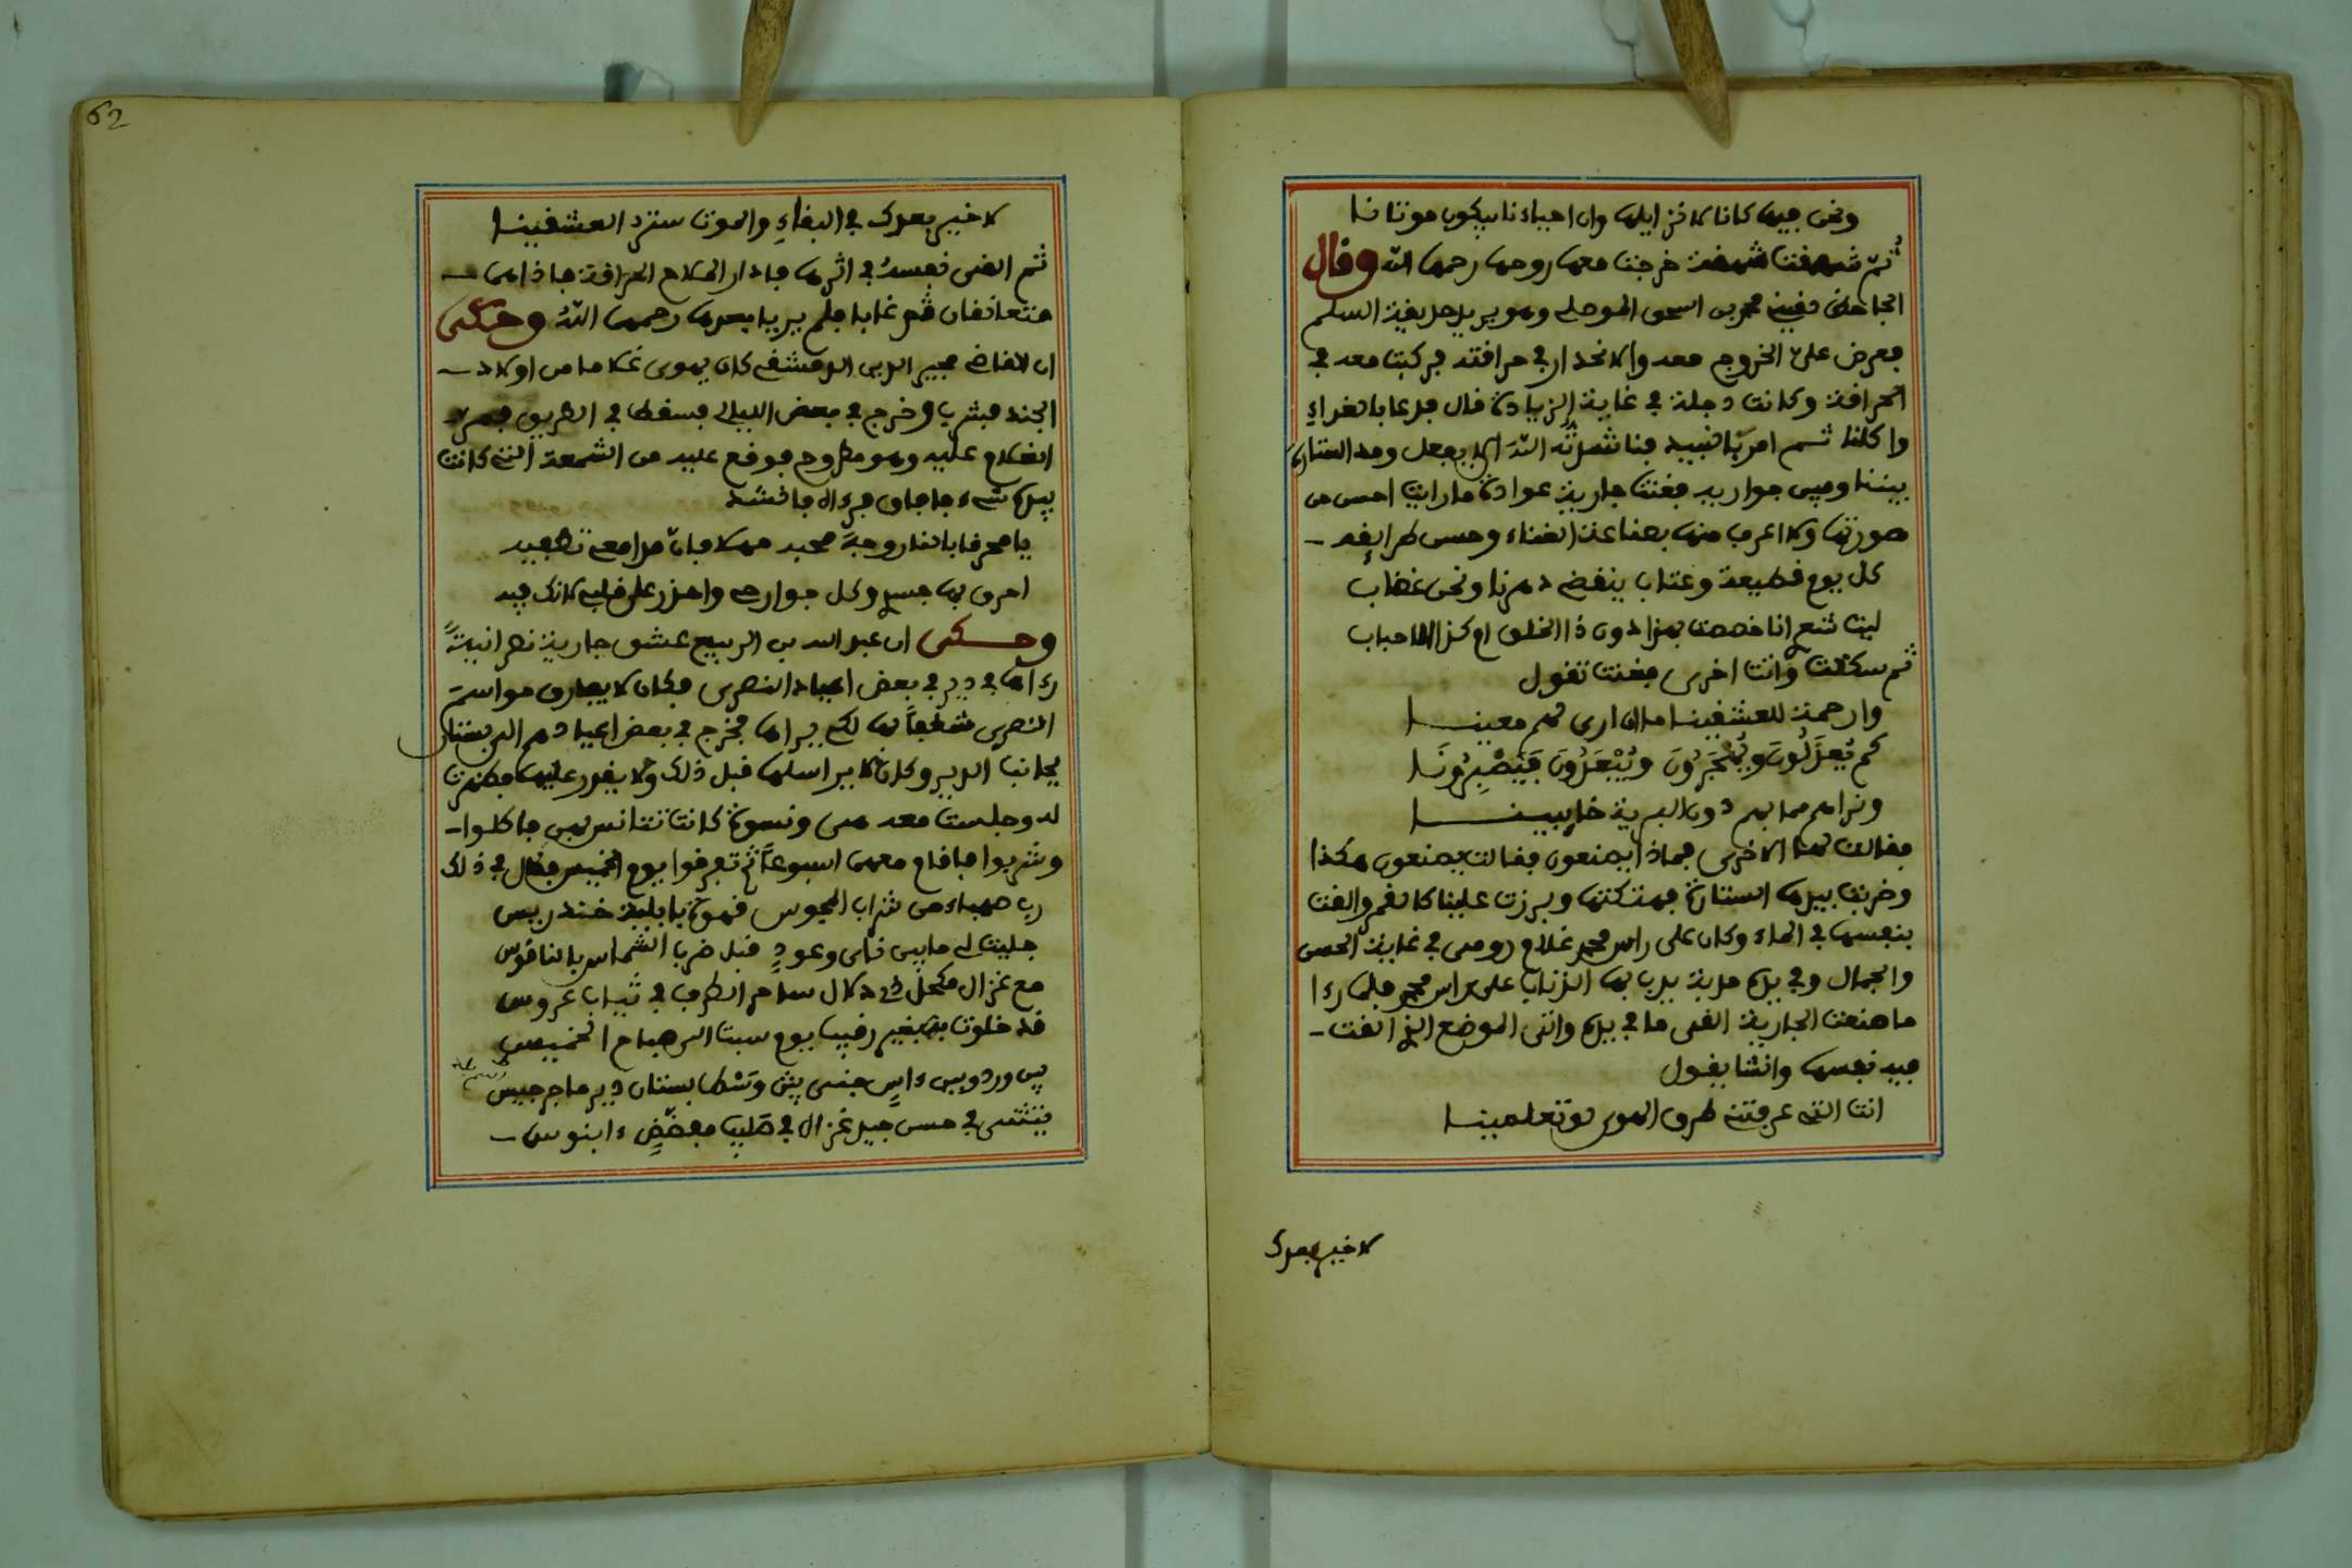 ونحن جميعا كانا لا نزايلها وان احباءنا يبكون موتانا
ثم شهقت شهقة خرجت معها روحها رحمها الله وقال
الجاحظ لقيت محمد بن اسحق الموصلي وهو يريد الحديقة السلم
فعرض علي الخروج معه والانحدار في حراقته فركبت معه في
الحراقة وكانت دجلة في غاية الزيادة قال فدعا بالغداء
واكلنا ثم امر بالنبيذ فناشدته الله الا يفعل ومد الستارة
بيننا وبين جواريه فغنت جارية عوادة ما رايت احسن من
صورتها ولا اعرف منها بصناعة الغناء وحسن طرايقه
كل يوم قطيعة وعتاب ينقضي دهرنا ونحن غضاب
ليت شعري انا خصصت بهذا دون ذا الخلق ام كذا الاحباب
ثم سكتت واتت اخرى فغنت تقول
وارحمة للعشقينا ما ان ارى لهم معينا
كم يعذلون ويهجرون ويبعدون فيصبرونا
وتراهم مما بهم دون البرية خايبينا
فقالت لها الاخرى فماذا يصنعون فقالت يصنعون هكذا
وضربت بيدها الستارة فهتكتها وبرزت علينا كالقمر والقت
بنفسها في الماء وكان على راس محمد غلام رومي في غاية الحسن
والجمال وفي يده مذبة يذب بها الذباب على راس محمد فلما رءا
ما صنعت الجارية القى ما في يده واتى الموضع الذي القت
فيه نفسها وانشا يقول
انت التي عرفتني طرق الهوى لو تعلمينا
لا خير بعدك
62
لا خير بعدك في البقاء والموت ستر العشقينا
ثم القى نفسه في اثرها فادار الملاح الحراقة فاذا هما
متعانقان ثم غابا فلم يريا بعدها رحمهما الله وحكي
ان القاضي مجير الدين الدمشقي كان يهوى غلاما من اولاد
الجند فشرب وخرج في بعض الليالي فسقط في الطريق فمر
الغلام عليه وهو مطروح فوقع عليه من الشمعة التي كانت
بيده شيء فافاق فرءاه فانشد
يا محرقا بالنار وجه محبه مهلا فان مدامعي تطفيه
احرق بها جسدي وكل جوارحي واحذر على قلبي لانك فيه
وحكي ان عبد الله بن الربيع عشق جارية نصرانية
رءاها في دير في بعض اعياد النصرى فكان لا يفارق مواسم
النصرى شغفا بها لكي يراها فخرج في بعض اعيادهم الى بستان
بجانب الدير وكان لا يراسلها قبل ذلك ولا يقدر عليها فظهرت
له وجلست معه هي ونسوة كانت تتانس بهن فاكلوا
وشربوا فاقام معهن اسبوعا ثم تفرقوا يوم الخميس فقال في ذلك
رب صهباء من شراب المجوس قهوة بابلية خندريس
جليت لي ما بين ناي وعود قبل ضرب الشماس بالناقوس
مع غزال مكحل ذي دلال ساحر الطرف في ثياب عروس
قد خلونا به بغير رقيب يوم سبت الى صباح الخميس
بين ورد وبين ءاس جني بين وسط بستان دير ما جرجيس
يتثنى في حسن جيد غزال في صليب مفضض ءابنوس